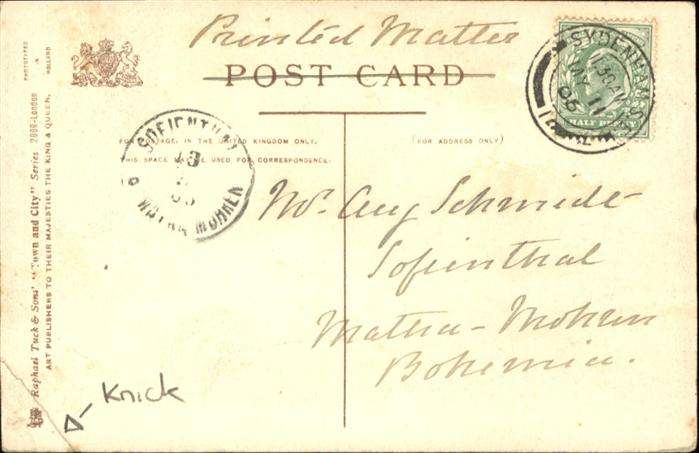 Printed Matter
POST CARD
FOR POSTAGE, IN THE UNITED KINGDOM ONLY,
THIS SPACE MAY BE USED FOR CORRESPONDENCE.
(FOR ADDRESS ONLY)
PHOTOTYPED
IN
HOLLAND
Raphael Tuck & Sons' "Town and City" Series 2000-London
ART PUBLISHERS TO THEIR MAJESTIES THE KING & QUEEN.
SYDENHAM S.O.
11
06
HALF PENNY
SOFIENTHAL
MOHREN
Mr. Aug Schmidt
Sofienthal
Mohren
Bohemia.
Knick